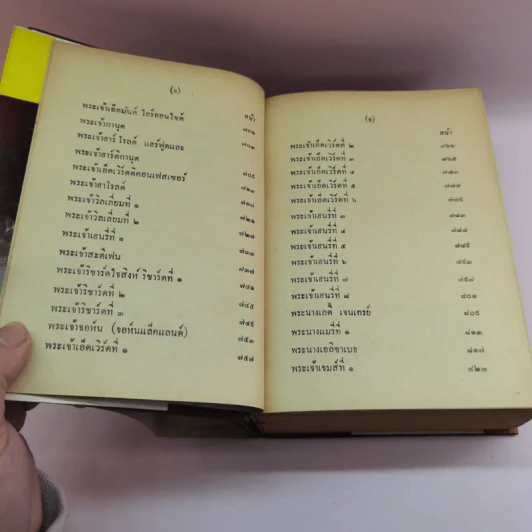 (๘)
หน้า
พระเจ้าเอ็ดมันด์ ไอร์ออนไซด์ ๗๐๒
พระเจ้าคานุต ๗๐๓
พระเจ้าฮาร์โรลด์ แฮร์ฟุตและ
พระเจ้าฮาร์ดิคานุต ๗๐๕
พระเจ้าเอ็ดเวิร์ดดิคอนเฟสเซอร์ ๗๑๐
พระเจ้าฮาโรลด์ ๗๑๗
พระเจ้าวิลเลี่ยมที่ ๑ ๗๒๑
พระเจ้าวิลเลี่ยมที่ ๒ ๗๒๗
พระเจ้าเฮนรี่ที่ ๑ ๗๓๑
พระเจ้าสะตีเฟน ๗๓๗
พระเจ้าริชาร์ดใจสิงห์ ริชาร์ดที่ ๑ ๗๔๑
พระเจ้าริชาร์ดที่ ๒ ๗๔๕
พระเจ้าริชาร์ดที่ ๓ ๗๔๙
พระเจ้าจอห์น (จอห์นแล็คแลนด์) ๗๕๓
พระเจ้าเอ็ดเวิร์ดที่ ๑ ๗๕๗
(๑)
หน้า
พระเจ้าเอ็ดเวิร์ดที่ ๒ ๗๖๑
พระเจ้าเอ็ดเวิร์ดที่ ๓ ๗๖๕
พระเจ้าเอ็ดเวิร์ดที่ ๔ ๗๗๓
พระเจ้าเอ็ดเวิร์ดที่ ๕ ๗๗๗
พระเจ้าเอ็ดเวิร์ดที่ ๖ ๗๗๙
พระเจ้าเฮนรี่ที่ ๓ ๗๘๓
พระเจ้าเฮนรี่ที่ ๔ ๗๘๗
พระเจ้าเฮนรี่ที่ ๕ ๗๘๙
พระเจ้าเฮนรี่ที่ ๖ ๗๙๓
พระเจ้าเฮนรี่ที่ ๗ ๗๙๗
พระเจ้าเฮนรี่ที่ ๘ ๘๐๑
พระนางเลดี้ เจนเกรย์ ๘๐๙
พระนางแมรี่ที่ ๑ ๘๑๑
พระนางเอลิซาเบธ ๘๑๗
พระเจ้าเจมส์ที่ ๑ ๘๒๓